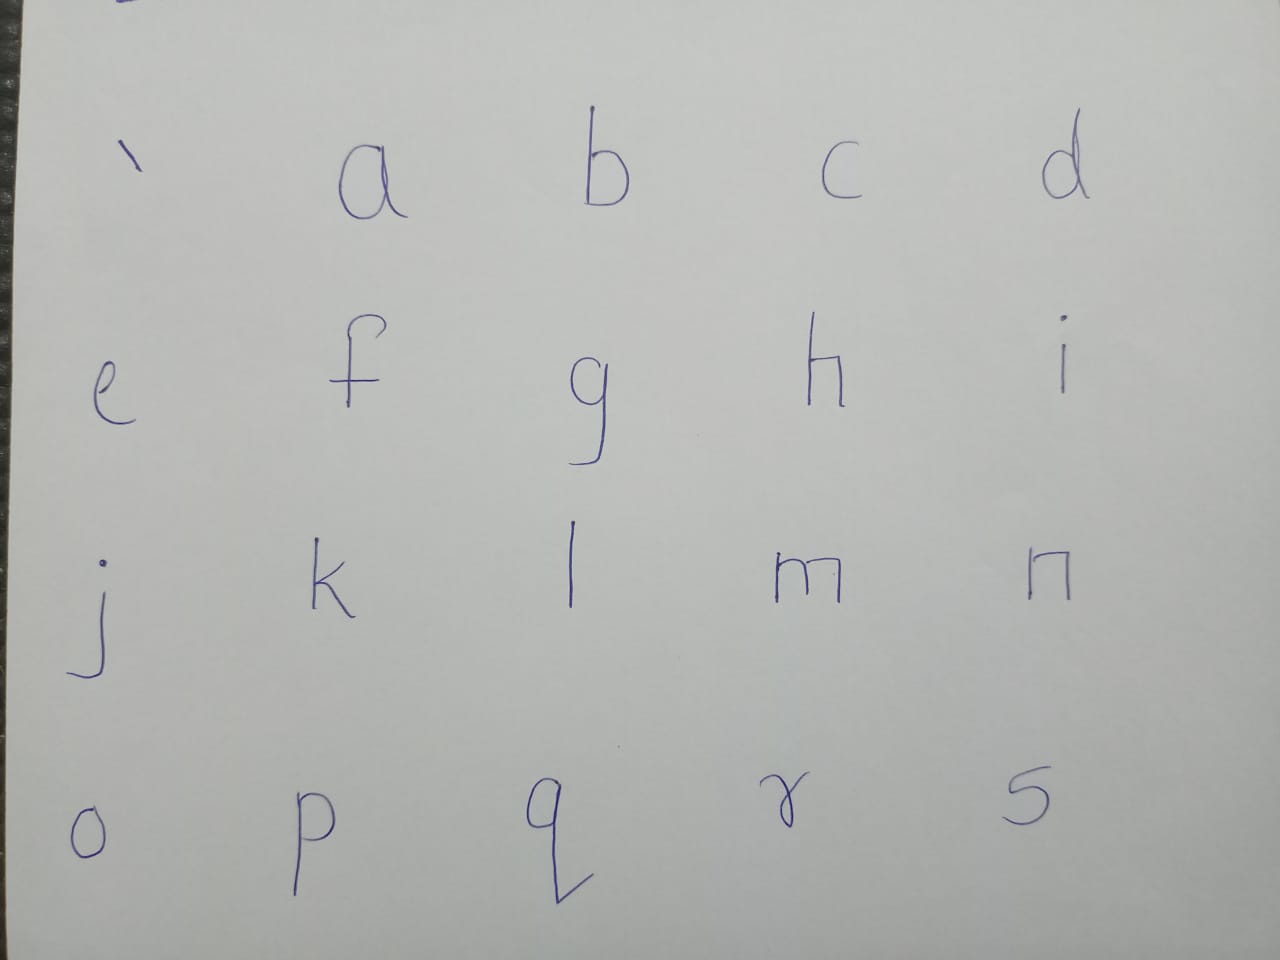 ` a b c d
e f g h i
j k l m n
o p q r s